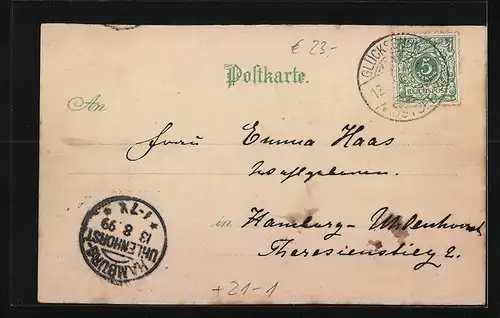 € 23.-
Postkarte.
5
REICHSPOST
An
Frau Emma Haas
Wohlgeboren.
in Hamburg-Uhlenhorst
Theresienstieg 2.
HAMBURG-
UHLENHORST
13 8 99
+21-1